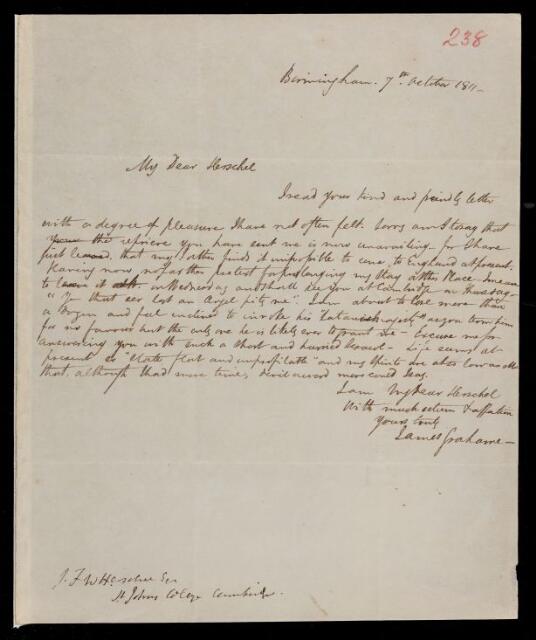 238
Birmingham. 7th October 1811
My Dear Herschel
I read your kind and friendly letter
with a degree of pleasure I have not often felt. Sorry am I to say that
the reprieve you have sent me is now unavailing. for I have
just learned, that my father finds it impossible to come to England at present.
Having now no further pretext for prolonging my stay at this Place I mean
to leave it on Wednesday and shall see you at Cambridge on Thursday -
"Ye that eer lost an Angel pity me". I am about to lose more than
a and feel inclined to invoke his as you term him
for no favour but the only one he is likely ever to grant me - Excuse me for
answering you with such a short and hurried - Life seems at
present so "stale flat and unprofitable" and my spirits are also low
that although I had more time, devil a word more could I say.
I am My dear Herschel
With much esteem & affection
Yours truly
James Grahame -
J. F. W Herschel Esqr
St Johns College Cambridge.